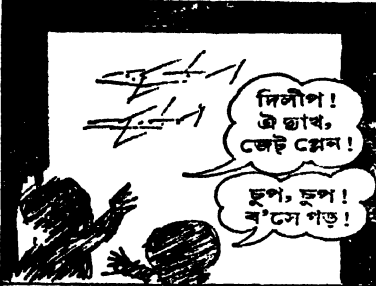 দিলীপ!
ঐ দ্যাখ,
জেট্ প্লেন!
চুপ, চুপ!
ব'সে পড়!